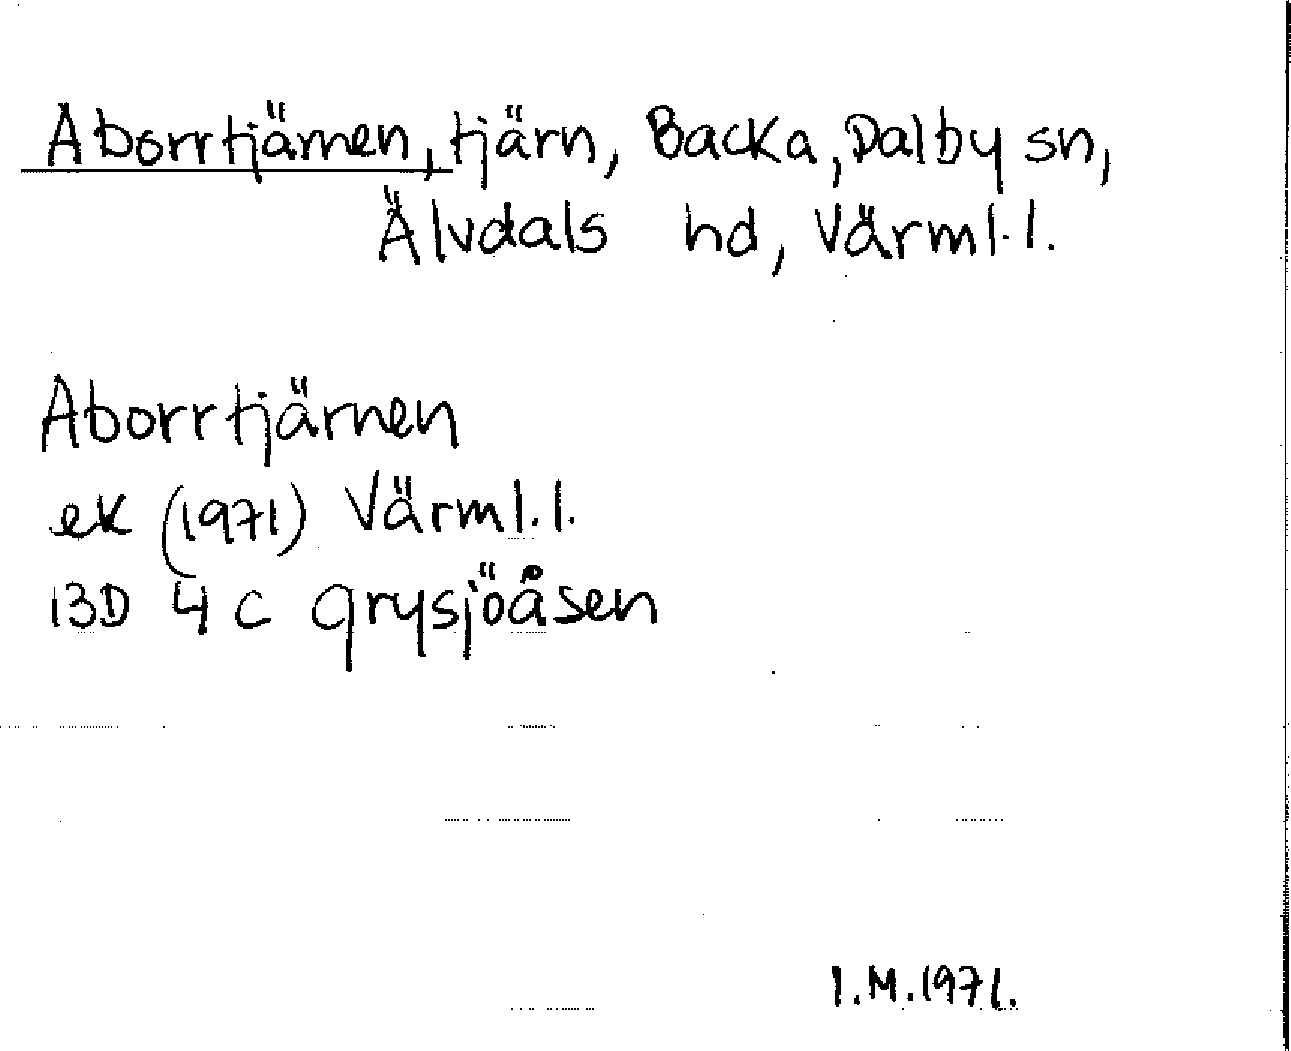 Aborrtjärnen, tjärn, Backa, Dalby sn,
Älvdals hd, Värml.l.
Aborrtjärnen
ek (1971) Värml.l.
13D 4 c grysjöåsen
I.M.1971.